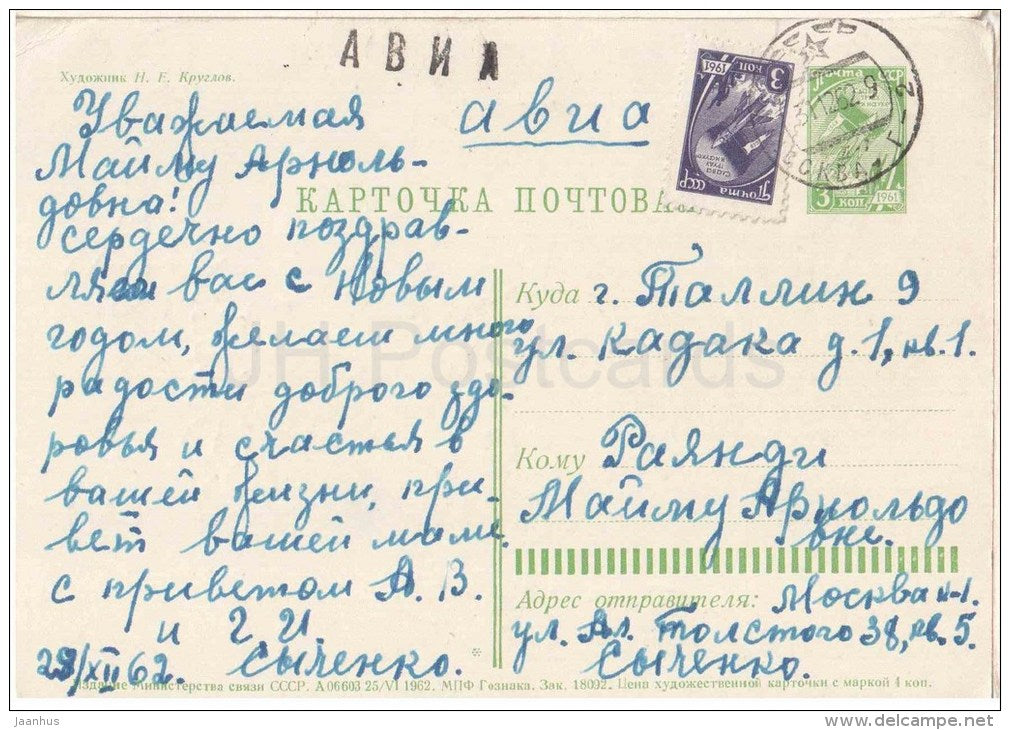 АВИА
Художник Н. Е. Круглов.
Уважаемая
Майму Арноль-
довна!
сердечно поздрав-
ляем вас с Новым
годом, желаем много
радости доброго здо-
ровья и счастья в
вашей жизни, при-
вет вашей маме.
с приветом А. В.
и Г. И.
Сыченко.
29/XII 62.
авиа
КАРТОЧКА ПОЧТОВАЯ
1961
3 КОП
СЛАВА
ТРУДУ
Почта
СССР
ПОЧТА СССР
3 КОП
1961
31 12 62 9
МОСКВА
Куда г. Таллин 9
ул. Кадака д. 1, кв. 1.
Кому Раянди
Майму Арнольдо
вне.
Адрес отправителя: Москва
ул. Ал. Толстого 38, кв. 5.
Сыченко.
Издание Министерства связи СССР. А 06603 25/VI 1962. МПФ Гознака. Зак. 18092. Цена художественной карточки с маркой 4 коп.
JH Postcards
jaanhus
www.delcampe.net